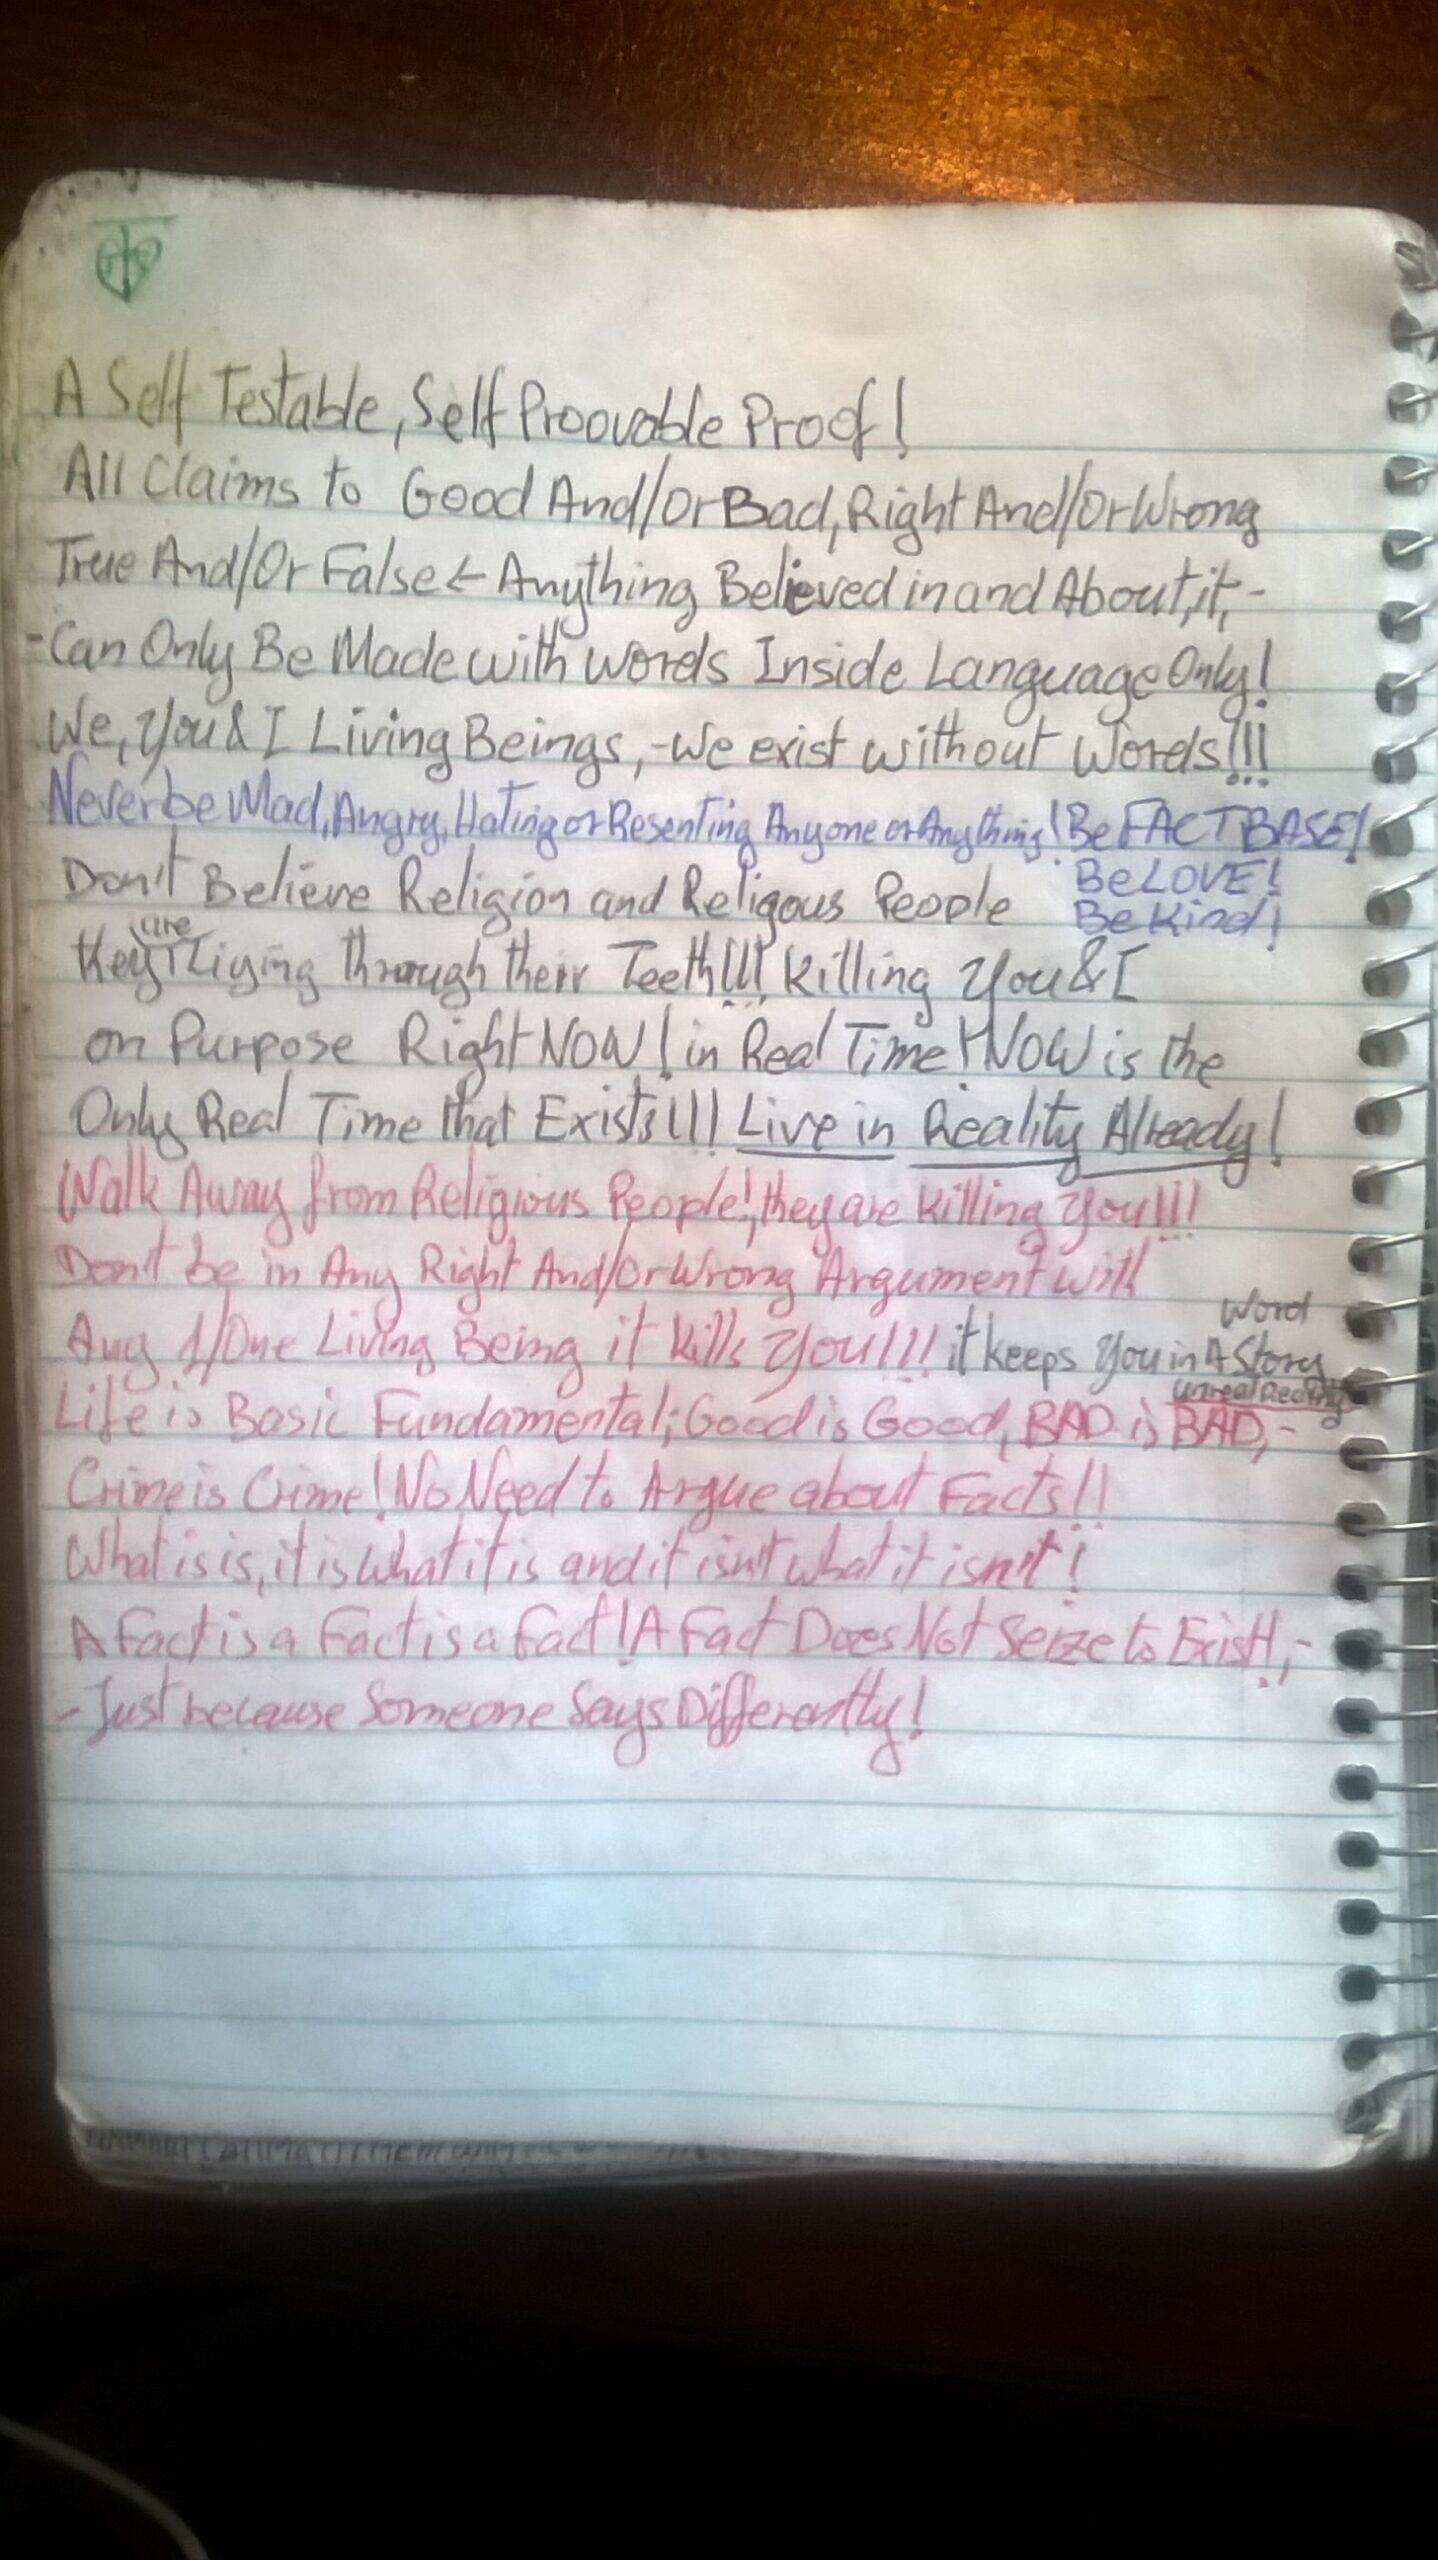 A Self Testable, Self Proovable Proof!
All Claims to Good And/Or Bad, Right And/Or Wrong
True And/Or False ← Anything Believed in and About, it, -
- Can Only Be Made with words Inside Language Only!
We, You & I Living Beings, - We exist without Words!!!
Never be Mad, Angry, Hating or Resenting Anyone or Anything! Be FACT BASE!
Be LOVE!
Be Kind!
Don't Believe Religion and Religous People
They are Liying through their Teeth!!! Killing You & I
on Purpose Right NOW! in Real Time! NOW is the
Only Real Time that Exists!!! Live in Reality Already!
Walk Away from Religious People!, they are Killing You!!!
Don't be in Any Right And/Or Wrong Argument with
Any 1/One Living Being it Kills You!!! it keeps You in A Word Story
unreal Reality
Life is Basic Fundamental; Good is Good, BAD is BAD, -
Crime is Crime! No Need to Argue about Facts!!
What is is, it is what it is and it isn't what it isn't!
A Fact is a Fact is a Fact! A Fact Does Not Seize to Exist!, -
- Just because Someone Says Differently!